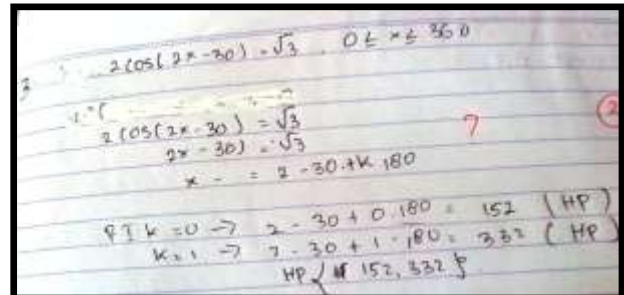 3 2 cos(2x-30) = √3 . 0 ≤ x ≤ 360
2 cos(2x-30) = √3
2x - 30) = √3
x - = 2 - 30 + k 180
?
2
k = 0 → 2 - 30 + 0.180 = 152 (HP)
k = 1 → 2 - 30 + 1 - 180 = 332 (HP)
HP { 152, 332 }